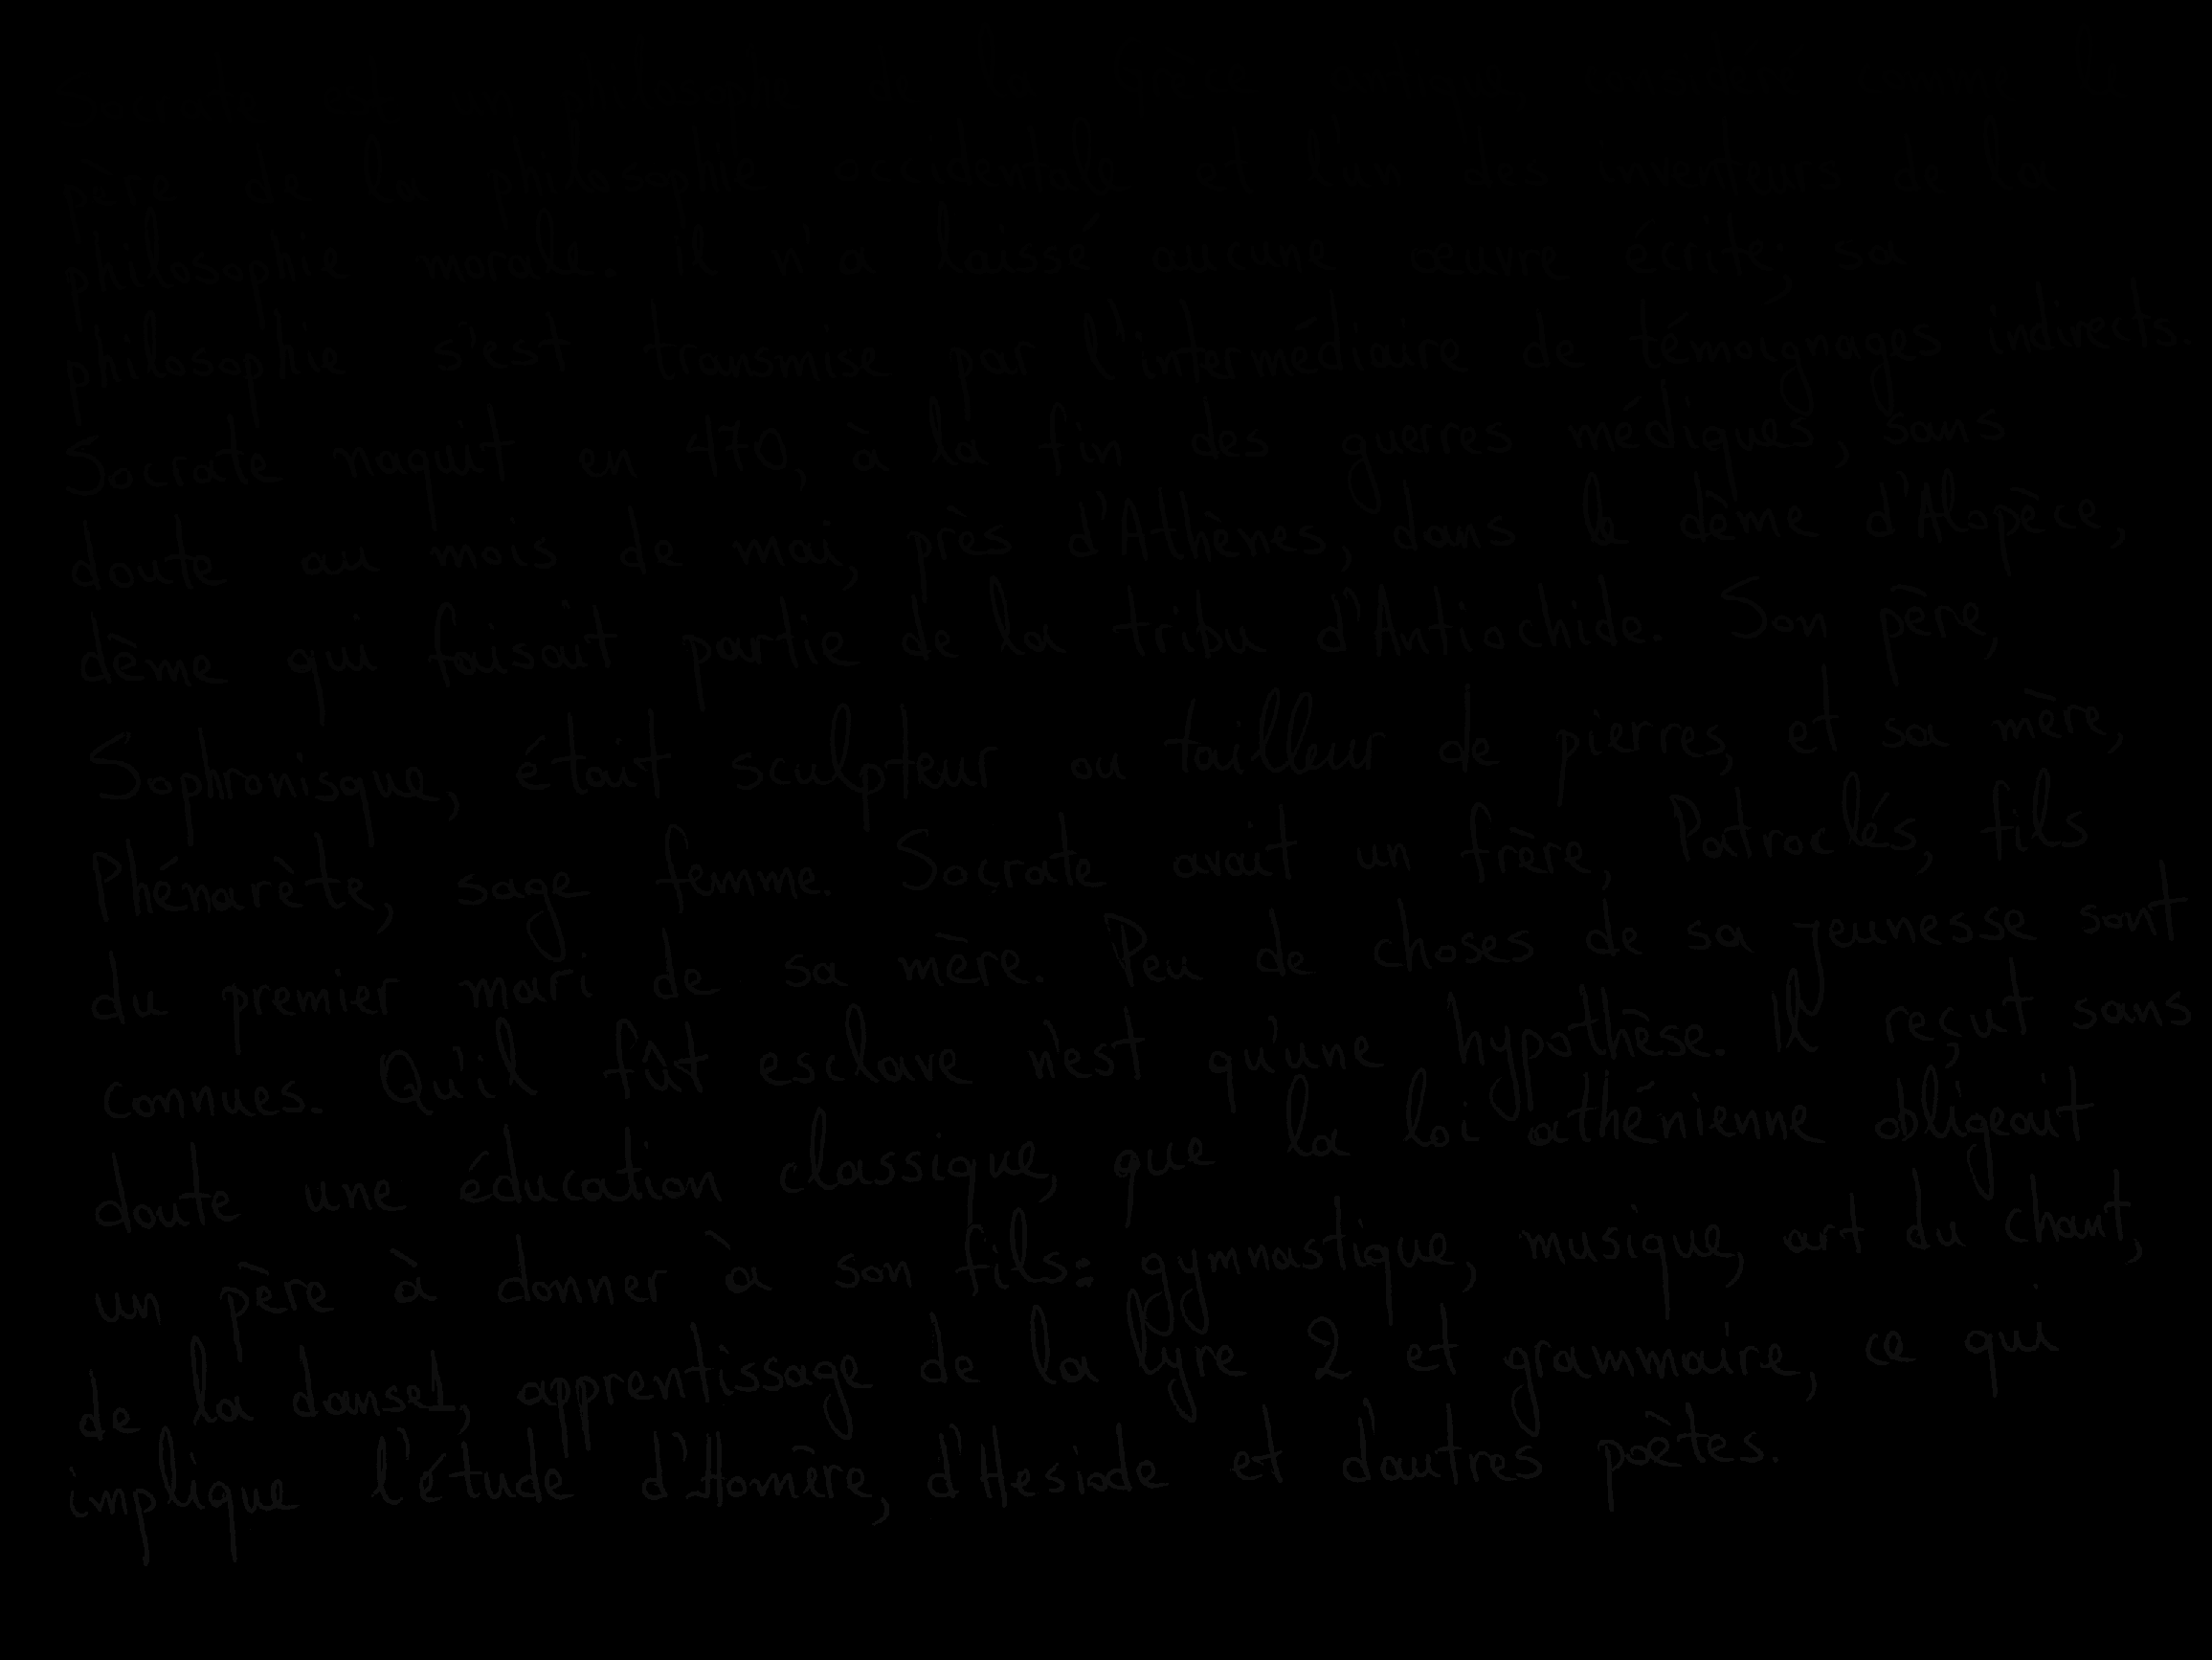 Socrate est un philosophe de la Grèce antique, considéré comme le
père de la philosophie occidentale et l'un des inventeurs de la
philosophie morale. il n'a laissé aucune œuvre écrite; sa
philosophie s'est transmise par l'intermédiaire de témoignages indirects.
Socrate naquit en 470, à la fin des guerres médiques, sans
doute au mois de mai, près d'Athènes, dans le dème d'Alopèce,
dème qui faisait partie de la tribu d'Antiochide. Son père,
Sophronisque, était sculpteur ou tailleur de pierres, et sa mère,
Phénarète, sage femme. Socrate avait un frère, Patroclés, fils
du premier mari de sa mère. Peu de choses de sa jeunesse sont
connues. Qu'il fût esclave n'est qu'une hypothèse. Il reçut sans
doute une éducation classique, que la loi athénienne obligeait
un père à donner à son fils: gymnastique, musique, art du chant,
de la danse1, apprentissage de la lyre 2 et grammaire, ce qui
implique l'étude d'Homère, d'Hesiode et d'autres poètes.